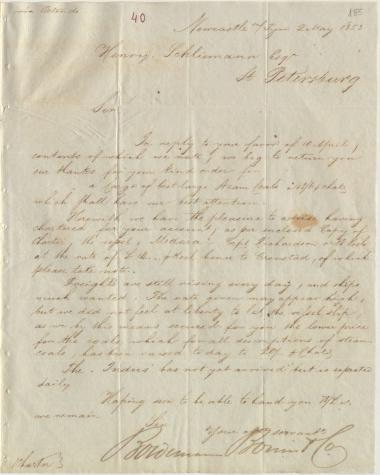 via Ostende
40
Newcastle Tyne 2 May 1853
Henry Schliemann Esqr
St Petersburg
Sir
In reply to your favor of April,
contents of which we note, we beg to return you
our thanks for your kind order for
a Cargo of best large Steam Coals
which shall have our best attention.
Herewith we have the pleasure to advise having
chartered for your account, as per inclosed Copy of
Charter, the vessel, Medora, Capt Richardson
at the rate of hence to Cronstad, of which
please take note.
Freights are still rising every day, and ships
much wanted. The rate given may appear high,
but we did not feel at liberty to let the vessel slip,
as we by this means secured for you the lower price
for the coals which for all descriptions of steam
coals, has been raised to day to
The has not yet arrived but is expected
daily
Hoping soon to be able to hand you B/L
we remain
Sir
Your servants
& Co